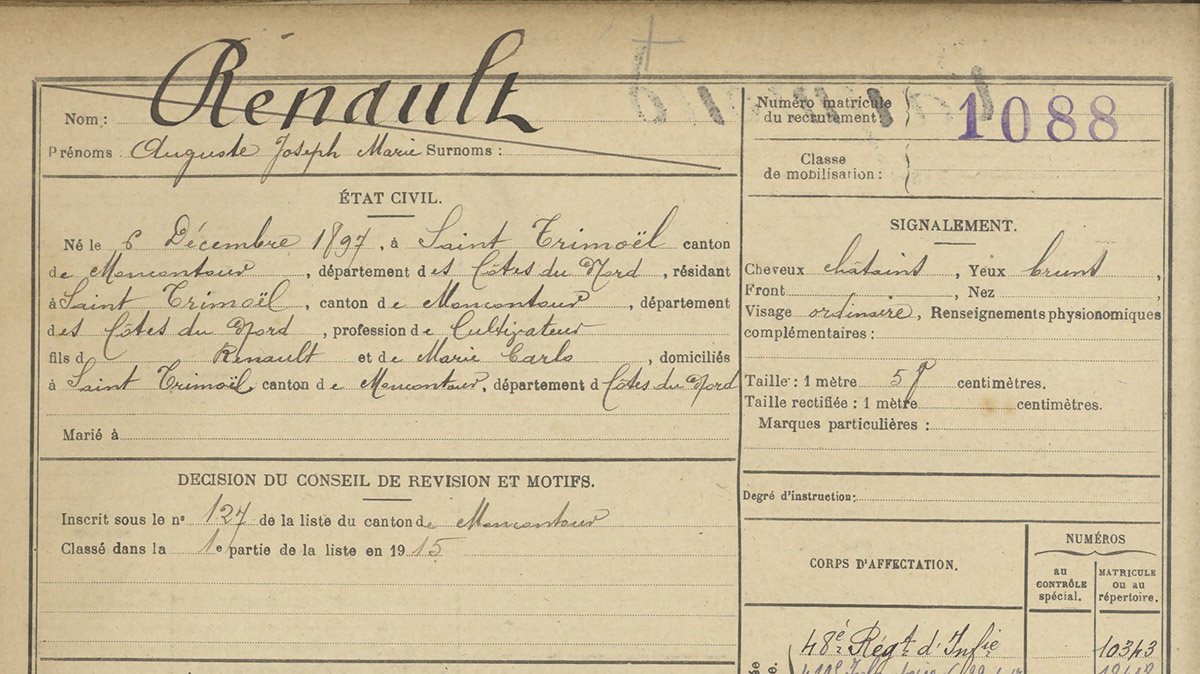 Renault
Nom :
Prénoms Auguste Joseph Marie Surnoms :
ÉTAT CIVIL.
Né le 6 Décembre 1897, à Saint Trimoël canton
de Moncontour, département des Côtes du Nord, résidant
à Saint Trimoël, canton de Moncontour, département
des Côtes du Nord, profession de Cultivateur
fils d Renault et de Marie Carlo, domiciliés
à Saint Trimoël canton de Moncontour, département d Côtes du Nord
Marié à
DECISION DU CONSEIL DE REVISION ET MOTIFS.
Inscrit sous le nº 127 de la liste du canton de Moncontour
Classé dans la 1e partie de la liste en 1915
Numéro matricule
du recrutement : 1088
Classe
de mobilisation :
SIGNALEMENT.
Cheveux châtains, Yeux bruns,
Front , Nez ,
Visage ordinaire, Renseignements physionomiques
complémentaires :
Taille : 1 mètre 59 centimètres.
Taille rectifiée : 1 mètre centimètres.
Marques particulières :
Degré d'instruction :
CORPS D'AFFECTATION.
NUMÉROS
au
CONTRÔLE
spécial.
MATRICULE
ou au
répertoire.
48e Régt d'Infie 10343